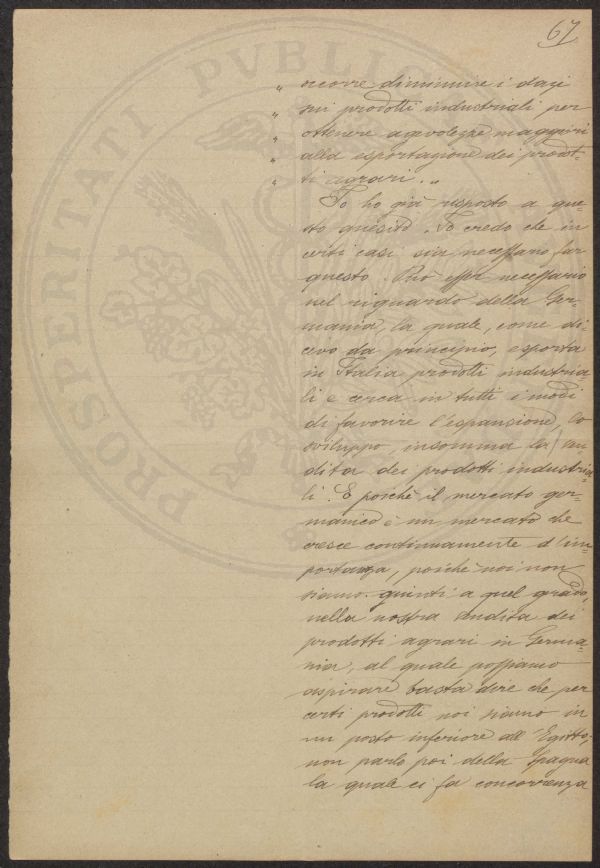 67
PROSPERITATI PVBLIC
„ ocorre diminuire i dazi
„ sui prodotti industriali per
„ ottenere agevolezze maggiori
„ alla esportazione dei prodot-
„ ti agrari. „
Io ho già risposto a que-
sto quesito. Io credo che in
certi casi sia necessario far
questo. Può esser necessario
nel riguardo della Ger-
mania, la quale, come di
cevo da principio, esporta
in Italia prodotti industria-
li e cerca in tutti i modi
di favorire l'espansione, lo
sviluppo, insomma la ven-
dita dei prodotti industria-
li. E poichè il mercato ger-
manico è un mercato che
cresce continuamente d'im-
portanza, poichè noi non
siamo giunti a quel grado,
nella nostra vendita dei
prodotti agrari in Germa-
nia, al quale possiamo
aspirare basta dire che per
certi prodotti noi siamo in
un posto inferiore all'Egitto,
non parlo poi della Spagna
la quale ci fa concorrenza